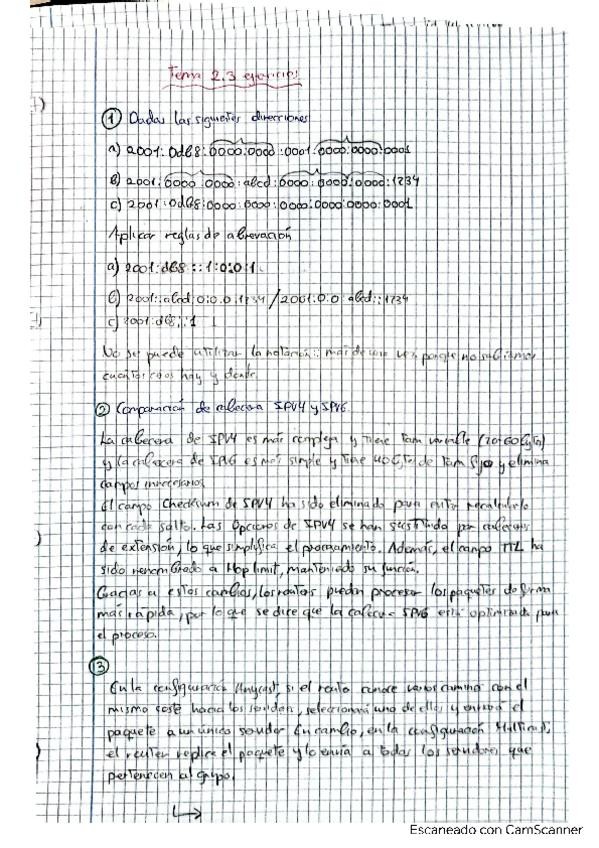 Tema 2.3 ejercicios
① Dadas las siguientes direcciones
a) 2001:0db8:0000:0000:0001:0000:0000:0001
b) 2001:0000:0000:abcd:0000:0000:0000:1234
c) 2001:0db8:0000:0000:0000:0000:0000:0001
Aplicar reglas de abreviación
a) 2001:db8::1:0:0:1
b) 2001::abcd:0:0:0:1234 / 2001:0:0:abcd::1234
c) 2001:db8::1
No se puede utilizar la notación :: más de una vez porque no sabríamos
cuantos ceros hay y donde.
② Comparación de cabecera IPV4 y IPV6
La cabecera de IPV4 es más compleja y tiene tam variable (20-60 bytes)
y la cabecera de IPV6 es más simple y tiene 40 bytes de tam fijo y elimina
campos innecesarios.
El campo Checksum de IPV4 ha sido eliminado para evitar recalcularlo
con cada salto. Las Opciones de IPV4 se han sustituido por cabeceras
de extensión, lo que simplifica el procesamiento. Además, el campo TTL ha
sido renombrado a Hop limit, manteniendo su función.
Gracias a estos cambios, los routers pueden procesar los paquetes de forma
más rápida, por lo que se dice que la cabecera IPV6 está optimizada para
el proceso.
③
En la configuración Anycast, si el router conoce varios caminos con el
mismo coste hacia los servidores, seleccionará uno de ellos y enviará el
paquete a un único servidor. En cambio, en la configuración Multicast,
el router replica el paquete y lo envía a todos los servidores que
pertenecen al grupo.
Escaneado con CamScanner